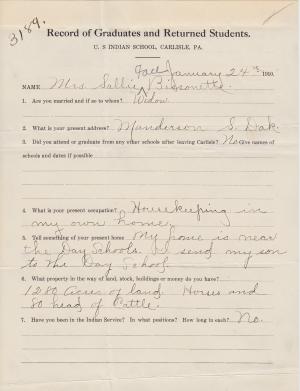 3189.
Record of Graduates and Returned Students.
U. S INDIAN SCHOOL, CARLISLE, PA.
January 24th 1910.
NAME Mrs Sallie Face Bissonette.
1. Are you married and if so to whom? Widow.
2. What is your present address? Manderson S. Dak.
3. Did you attend or graduate from any other schools after leaving Carlisle? No Give names of
schools and dates if possible
4. What is your present occupation? Housekeeping in
my own home.
5. Tell something of your present home My home is near
the Day Schools. I send my son
to the Day School
6. What property in the way of land, stock, buildings or money do you have?
1280 Acres of land. Horses and
80 head of Cattle.
7. Have you been in the Indian Service? In what positions? How long to each? No.